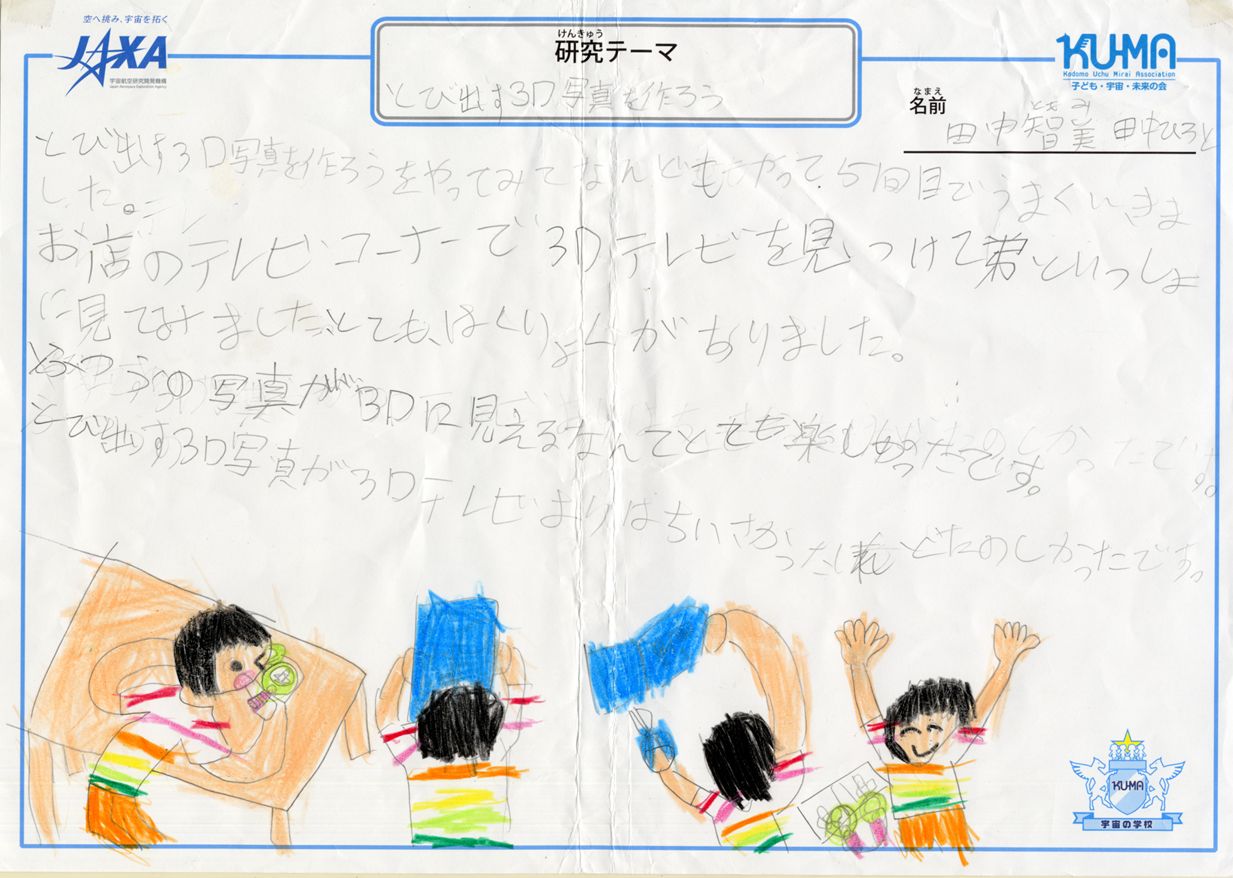 空へ挑み、宇宙を拓く
JAXA
宇宙航空研究開発機構
Japan Aerospace Exploration Agency
けんきゅう
研究テーマ
とび出す3D写真を作ろう
KU-MA
Kodomo Uchu Mirai Association
子ども・宇宙・未来の会
なまえ
名前
ともみ
田中智美 田中ひろと
とび出す3D写真を作ろうをやってみてなんどもやって5回目でうまくいきま
した。
お店のテレビコーナーで3Dテレビを見つけて弟といっしょ
に見てみました。とても、はくりょくがありました。
ふつうの写真が3Dに見えるなんてとても楽しかったです。
とび出す3D写真が3Dテレビよりはちいさかったけれどたのしかったです。
KU-MA
宇宙の学校